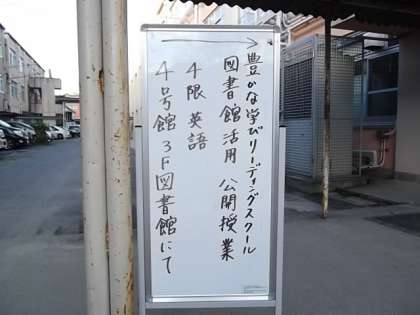 豊かな学びリーディングスクール
図書館活用 公開授業
4限 英語
4号館 3F図書館にて